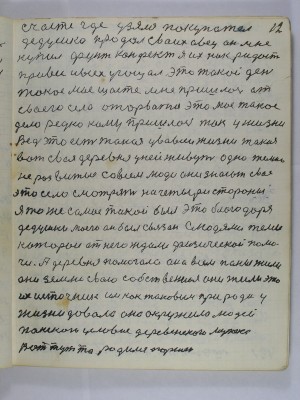 12
счасте где узяло покупател
дедушко продол своих авец ан мне
купил фрунт конфект я их как радост
привел и всех угощал. Это такой ден
такое мае щасте мне пришлос от
сваего село оторватся это мое такое
дело редко кому пришлос так у жизни
Вед это ест такая у вашей жизни такая
вот своя деревня у ней живут одно
не розвитые совсем люди они знают своя
это село смотрят на четыри стороны
я то же самое такой был Это благодоря
дедушки моего ан был связан с людями теми
которые от него ждали физической помо-
чи. А деревня помогала она всем паны жили
они землю своию собственная они жили это
их источник им как таковым природа у
жизни довала оно окружила людей
целовые деревенского мужика
Вот тут та родила